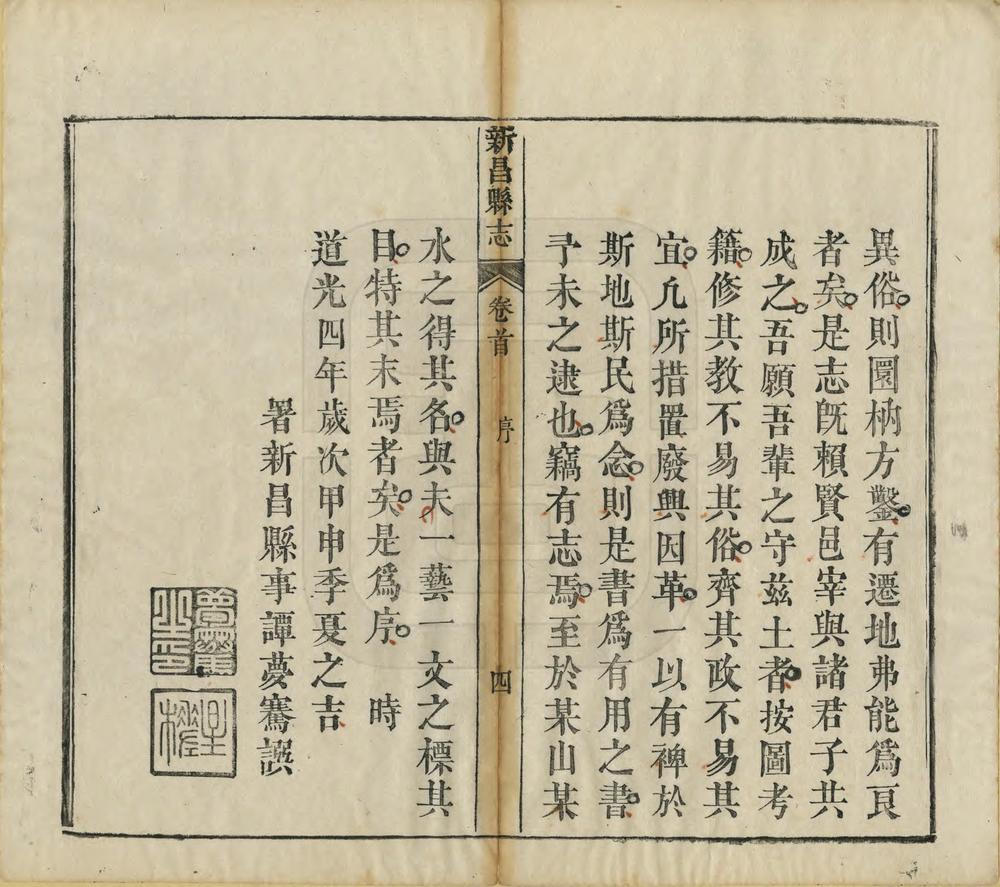 異俗則圜枘方鑿有遷地弗能爲良
者矣是志旣賴賢邑宰與諸君子共
成之吾願吾輩之守茲土者按圖考
籍修其敎不易其俗齊其政不易其
宜凢所措置廢興因革一以有裨於
斯地斯民爲念則是書爲有用之書
予未之逮也竊有志焉至於某山某
新昌縣志
卷首
序
四
水之得其名與夫一藝一文之標其
目特其末焉者矣是爲序 時
道光四年歲次甲申季夏之吉
署新昌縣事譚夢騫譔